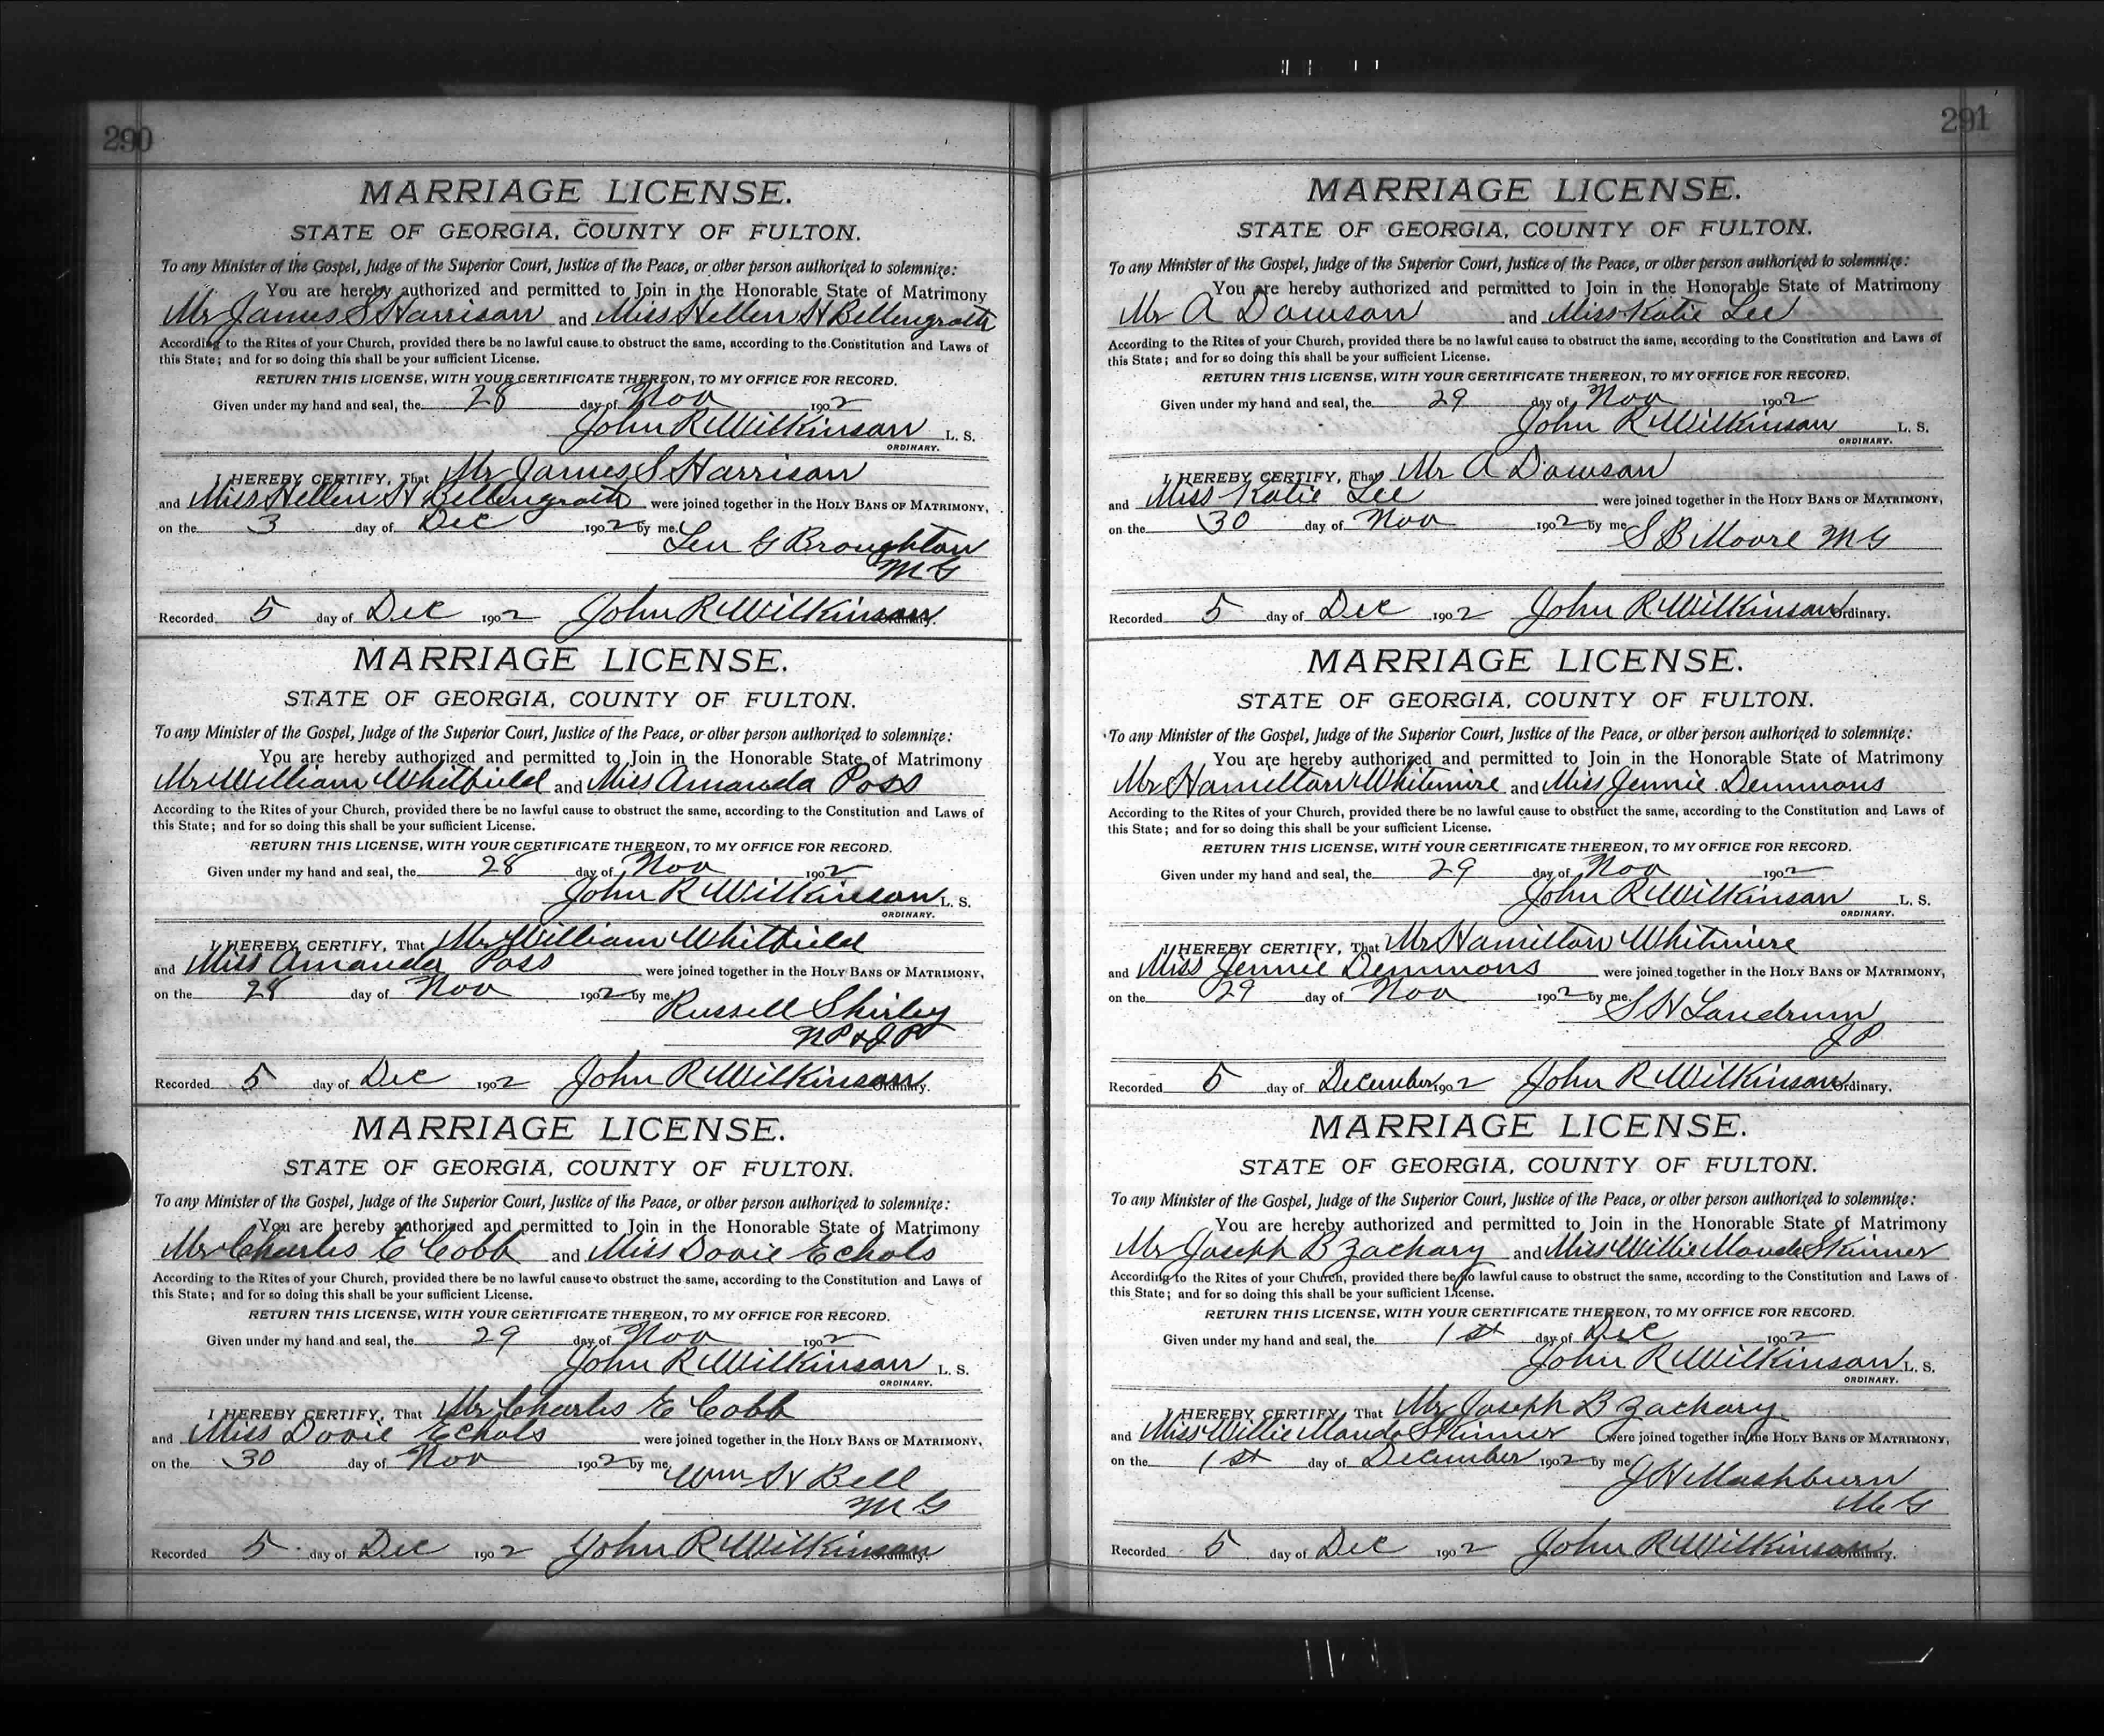 290
MARRIAGE LICENSE.
STATE OF GEORGIA, COUNTY OF FULTON.
To any Minister of the Gospel, Judge of the Superior Court, Justice of the Peace, or other person authorized to solemnize:
You are hereby authorized and permitted to Join in the Honorable State of Matrimony
Mr James S Harrison and Miss Hellen H Bellengrath
According to the Rites of your Church, provided there be no lawful cause to obstruct the same, according to the Constitution and Laws of
this State; and for so doing this shall be your sufficient License.
RETURN THIS LICENSE, WITH YOUR CERTIFICATE THEREON, TO MY OFFICE FOR RECORD.
Given under my hand and seal, the 28 day of Nov 1902
John R Wilkinson L. S.
ORDINARY.
I HEREBY CERTIFY, That Mr James S Harrison
and Miss Hellen H Bellengrath were joined together in the HOLY BANS OF MATRIMONY,
on the 3 day of Dec 1902 by me
Len G Broughton
M G
Recorded 5 day of Dec 1902 John R Wilkinson Ordinary.
MARRIAGE LICENSE.
STATE OF GEORGIA, COUNTY OF FULTON.
To any Minister of the Gospel, Judge of the Superior Court, Justice of the Peace, or other person authorized to solemnize:
You are hereby authorized and permitted to Join in the Honorable State of Matrimony
Mr William Whitfield and Miss Amanda Poss
According to the Rites of your Church, provided there be no lawful cause to obstruct the same, according to the Constitution and Laws of
this State; and for so doing this shall be your sufficient License.
RETURN THIS LICENSE, WITH YOUR CERTIFICATE THEREON, TO MY OFFICE FOR RECORD.
Given under my hand and seal, the 28 day of Nov 1902
John R Wilkinson L. S.
ORDINARY.
I HEREBY CERTIFY, That Mr William Whitfield
and Miss Amanda Poss were joined together in the HOLY BANS OF MATRIMONY,
on the 28 day of Nov 1902 by me
Russell Shirley
N P & J P
Recorded 5 day of Dec 1902 John R Wilkinson Ordinary.
MARRIAGE LICENSE.
STATE OF GEORGIA, COUNTY OF FULTON.
To any Minister of the Gospel, Judge of the Superior Court, Justice of the Peace, or other person authorized to solemnize:
You are hereby authorized and permitted to Join in the Honorable State of Matrimony
Mr Charles E Cobb and Miss Dovie Echols
According to the Rites of your Church, provided there be no lawful cause to obstruct the same, according to the Constitution and Laws of
this State; and for so doing this shall be your sufficient License.
RETURN THIS LICENSE, WITH YOUR CERTIFICATE THEREON, TO MY OFFICE FOR RECORD.
Given under my hand and seal, the 29 day of Nov 1902
John R Wilkinson L. S.
ORDINARY.
I HEREBY CERTIFY, That Mr Charles E Cobb
and Miss Dovie Echols were joined together in the HOLY BANS OF MATRIMONY,
on the 30 day of Nov 1902 by me
Wm H Bell
M G
Recorded 5 day of Dec 1902 John R Wilkinson Ordinary.
291
MARRIAGE LICENSE.
STATE OF GEORGIA, COUNTY OF FULTON.
To any Minister of the Gospel, Judge of the Superior Court, Justice of the Peace, or other person authorized to solemnize:
You are hereby authorized and permitted to Join in the Honorable State of Matrimony
Mr A Dawson and Miss Katie Lee
According to the Rites of your Church, provided there be no lawful cause to obstruct the same, according to the Constitution and Laws of
this State; and for so doing this shall be your sufficient License.
RETURN THIS LICENSE, WITH YOUR CERTIFICATE THEREON, TO MY OFFICE FOR RECORD.
Given under my hand and seal, the 29 day of Nov 1902
John R Wilkinson L. S.
ORDINARY.
I HEREBY CERTIFY, That Mr A Dawson
and Miss Katie Lee were joined together in the HOLY BANS OF MATRIMONY,
on the 30 day of Nov 1902 by me
S B Moore M G
Recorded 5 day of Dec 1902 John R Wilkinson Ordinary.
MARRIAGE LICENSE.
STATE OF GEORGIA, COUNTY OF FULTON.
To any Minister of the Gospel, Judge of the Superior Court, Justice of the Peace, or other person authorized to solemnize:
You are hereby authorized and permitted to Join in the Honorable State of Matrimony
Mr Hamilton Whitmire and Miss Jennie Demmons
According to the Rites of your Church, provided there be no lawful cause to obstruct the same, according to the Constitution and Laws of
this State; and for so doing this shall be your sufficient License.
RETURN THIS LICENSE, WITH YOUR CERTIFICATE THEREON, TO MY OFFICE FOR RECORD.
Given under my hand and seal, the 29 day of Nov 1902
John R Wilkinson L. S.
ORDINARY.
I HEREBY CERTIFY, That Mr Hamilton Whitmire
and Miss Jennie Demmons were joined together in the HOLY BANS OF MATRIMONY,
on the 29 day of Nov 1902 by me
S H Landrum
J P
Recorded 5 day of December 1902 John R Wilkinson Ordinary.
MARRIAGE LICENSE.
STATE OF GEORGIA, COUNTY OF FULTON.
To any Minister of the Gospel, Judge of the Superior Court, Justice of the Peace, or other person authorized to solemnize:
You are hereby authorized and permitted to Join in the Honorable State of Matrimony
Mr Joseph B Zachary and Miss Willie Maude Skinner
According to the Rites of your Church, provided there be no lawful cause to obstruct the same, according to the Constitution and Laws of
this State; and for so doing this shall be your sufficient License.
RETURN THIS LICENSE, WITH YOUR CERTIFICATE THEREON, TO MY OFFICE FOR RECORD.
Given under my hand and seal, the 1st day of Dec 1902
John R Wilkinson L. S.
ORDINARY.
I HEREBY CERTIFY, That Mr Joseph B Zachary
and Miss Willie Maude Skinner were joined together in the HOLY BANS OF MATRIMONY,
on the 1st day of December 1902 by me
J H Mashburn
M G
Recorded 5 day of Dec 1902 John R Wilkinson Ordinary.